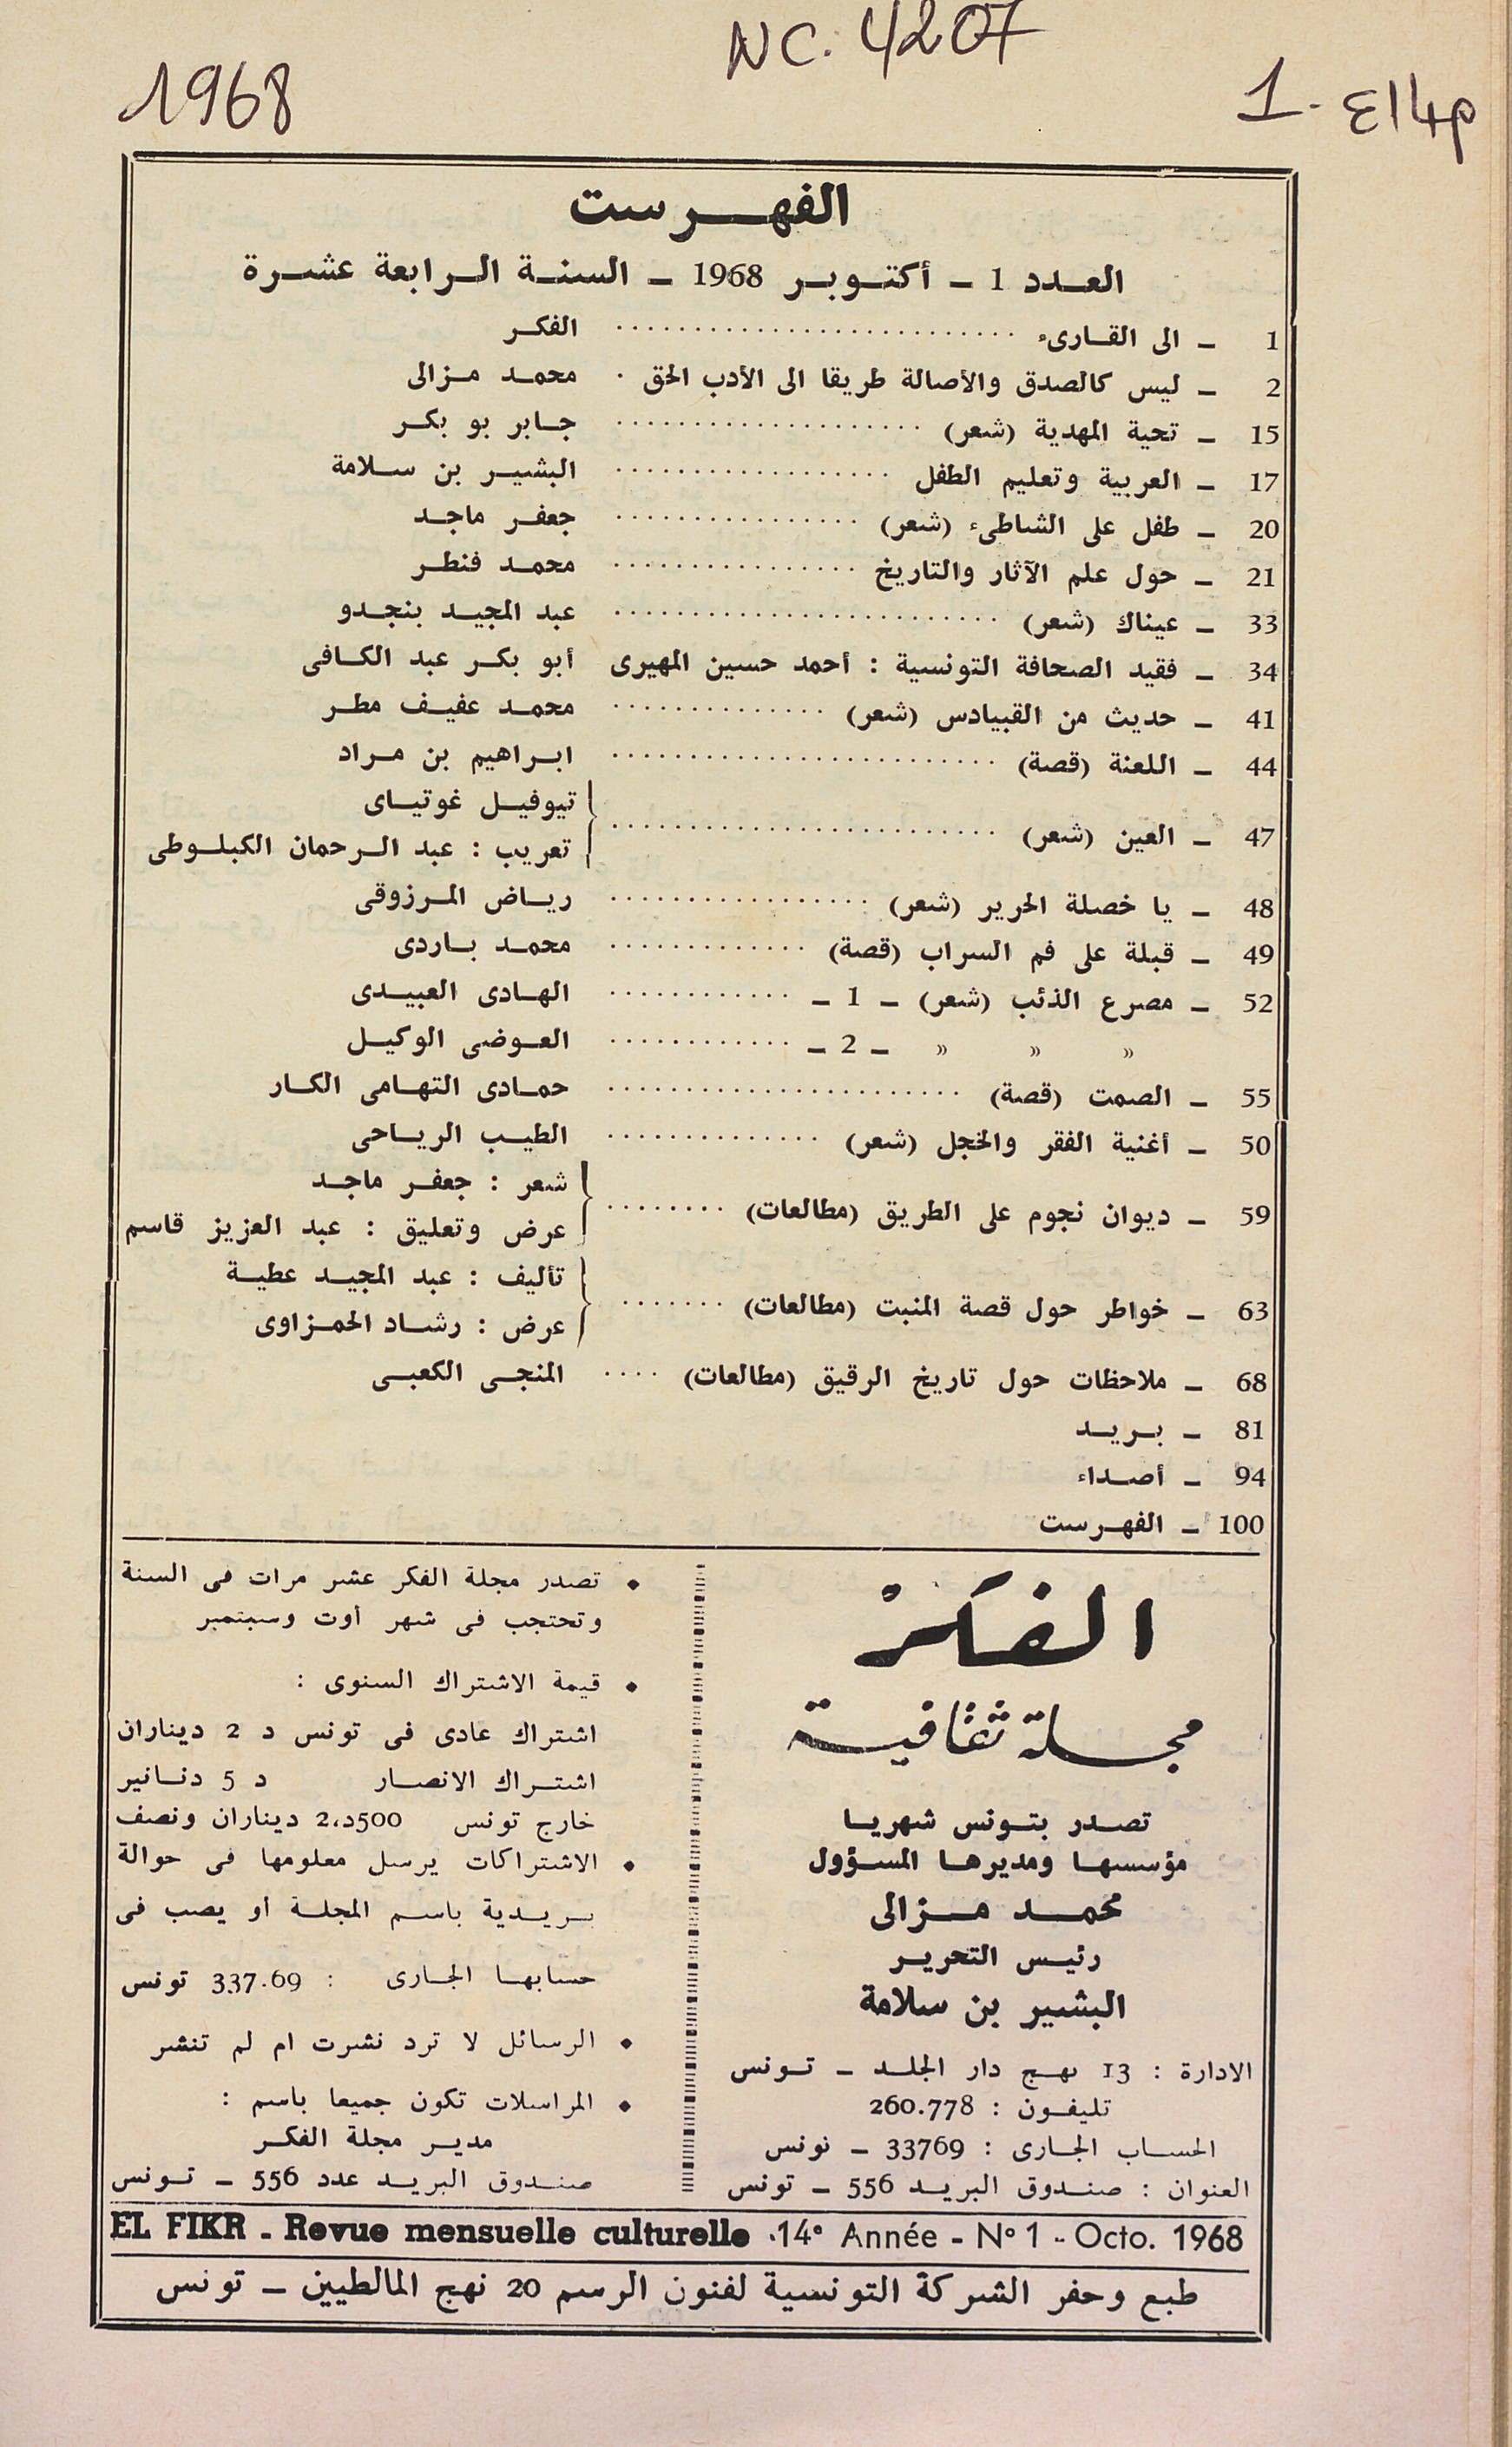 NC. 4207
1968
الفهرست
العدد 1 ـ أكتوبر 1968 ـ السنة الرابعة عشرة
1 ـ الى القارىء .......................... الفكر
2 ـ ليس كالصدق والأصالة طريقا الى الأدب الحق . محمد مزالى
15 ـ تحية المهدية (شعر) .................... جابر بو بكر
17 ـ العربية وتعليم الطفل .................. البشير بن سلامة
20 ـ طفل على الشاطىء (شعر) ................ جعفر ماجد
21 ـ حول علم الآثار والتاريخ ................ محمد فنطر
33 ـ عيناك (شعر) ......................... عبد المجيد بنجدو
34 ـ فقيد الصحافة التونسية : أحمد حسين المهيرى أبو بكر عبد الكافى
41 ـ حديث من القبيادس (شعر) .............. محمد عفيف مطر
44 ـ اللعنة (قصة) ......................... ابراهيم بن مراد
47 ـ العين (شعر) .........................
تيوفيل غوتياى
تعريب : عبد الرحمان الكبلوطى
48 ـ يا خصلة الحرير (شعر) ................. رياض المرزوقى
49 ـ قبلة على فم السراب (قصة) ............. محمد باردى
52 ـ مصرع الذئب (شعر) ـ 1 ـ ............ الهادى العبيدى
» » » ـ 2 ـ ............ العوضى الوكيل
55 ـ الصمت (قصة) ....................... حمادى التهامى الكار
50 ـ أغنية الفقر والخجل (شعر) .............. الطيب الرياحى
59 ـ ديوان نجوم على الطريق (مطالعات) ........
شعر : جعفر ماجد
عرض وتعليق : عبد العزيز قاسم
63 ـ خواطر حول قصة المنبت (مطالعات) .......
تأليف : عبد المجيد عطية
عرض : رشاد الحمزاوى
68 ـ ملاحظات حول تاريخ الرقيق (مطالعات) .... المنجى الكعبى
81 ـ بريد
94 ـ أصداء
100 ـ الفهرست
الفكر
مجلة ثقافية
تصدر بتونس شهريا
مؤسسها ومديرها المسؤول
محمد مزالى
رئيس التحرير
البشير بن سلامة
الادارة : 13 نهج دار الجلد ـ تونس
تليفون : 260.778
الحساب الجارى : 33769 ـ تونس
العنوان : صندوق البريد 556 ـ تونس
• تصدر مجلة الفكر عشر مرات فى السنة
وتحتجب فى شهر أوت وسبتمبر
• قيمة الاشتراك السنوى :
اشتراك عادى فى تونس د 2 ديناران
اشتراك الانصار د 5 دنانير
خارج تونس 500د،2 ديناران ونصف
• الاشتراكات يرسل معلومها فى حوالة
بريدية باسم المجلة أو يصب فى
حسابها الجارى : 337.69 تونس
• الرسائل لا ترد نشرت ام لم تنشر
• المراسلات تكون جميعا باسم :
مدير مجلة الفكر
صندوق البريد عدد 556 ـ تونس
EL FIKR - Revue mensuelle culturelle - 14e Année - N° 1 - Octo. 1968
طبع وحفر الشركة التونسية لفنون الرسم 20 نهج المالطيين ـ تونس